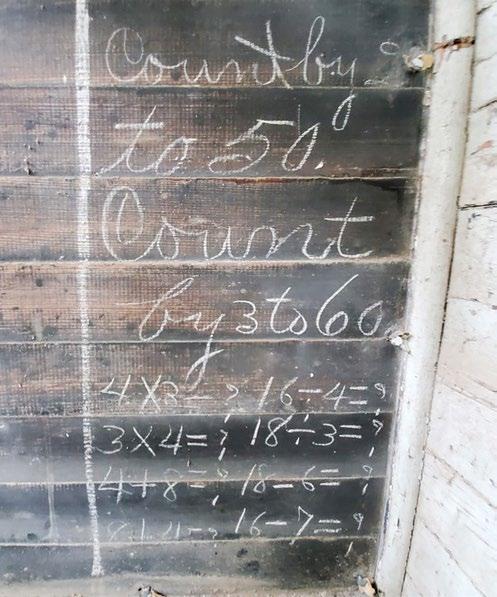 Count by
to 50.
Count
by 3 to 60
4×3=? 16÷4=?
3×4=? 18÷3=?
4+8=? 18-6=?
16-7=?